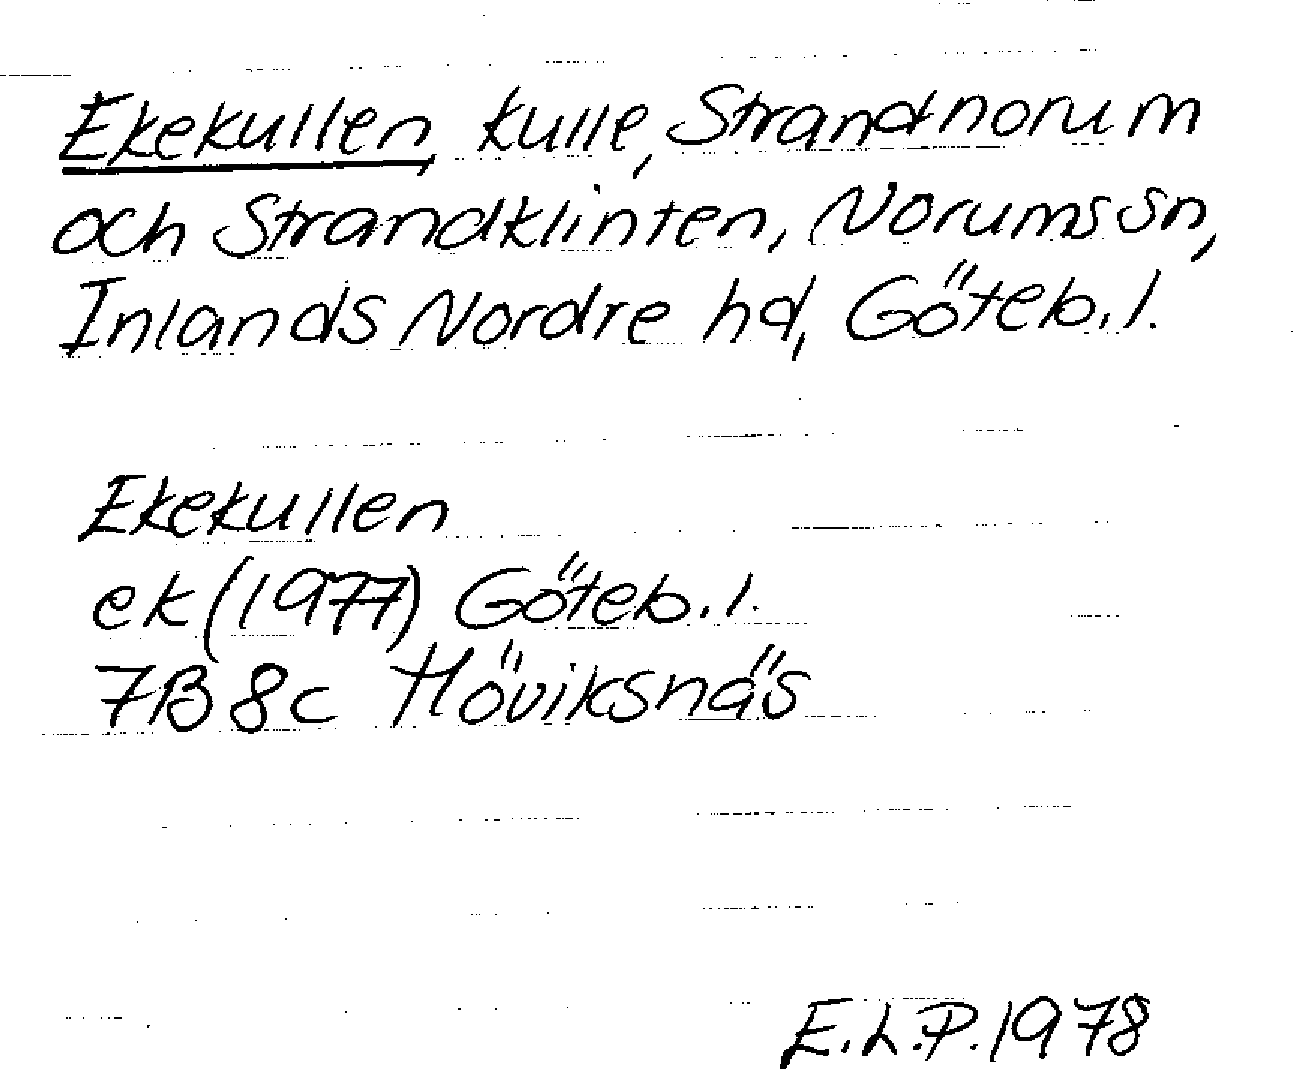 Ekekullen, kulle, Strandnorum
och Strandklinten, Norums sn,
Inlands Nordre hd, Göteb. l.
Ekekullen
ek (1977) Göteb. l.
7B 8c Höviksnäs
E.L.P. 1978